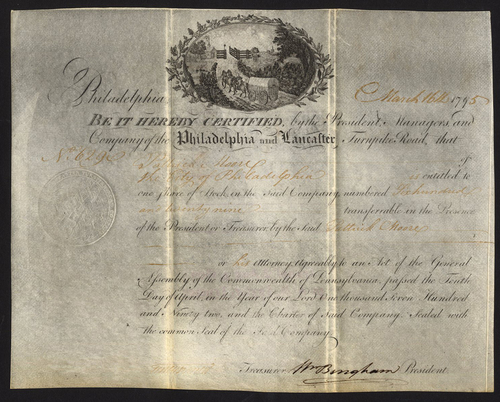 Philadelphia March 16th 1795
BE IT HEREBY CERTIFIED, by the President, Managers, and
Company of the Philadelphia and Lancaster Turnpike Road, that
No. Patrick Moore of
the City of Philadelphia is entitled to
one share of Stock, in the said Company, numbered Six hundred
and twenty nine transferrable in the Presence
of the President or Treasurer by the said Patrick Moore
or his Attorney. Agreeably to an Act of the General
Assembly of the Commonwealth of Pennsylvania, passed the Ninth
Day of April, in the Year of our Lord One thousand Seven Hundred
and Ninety two, and the Charter of said Company. Sealed with
the common Seal of the said Company.
Treasurer Wm Bingham President.